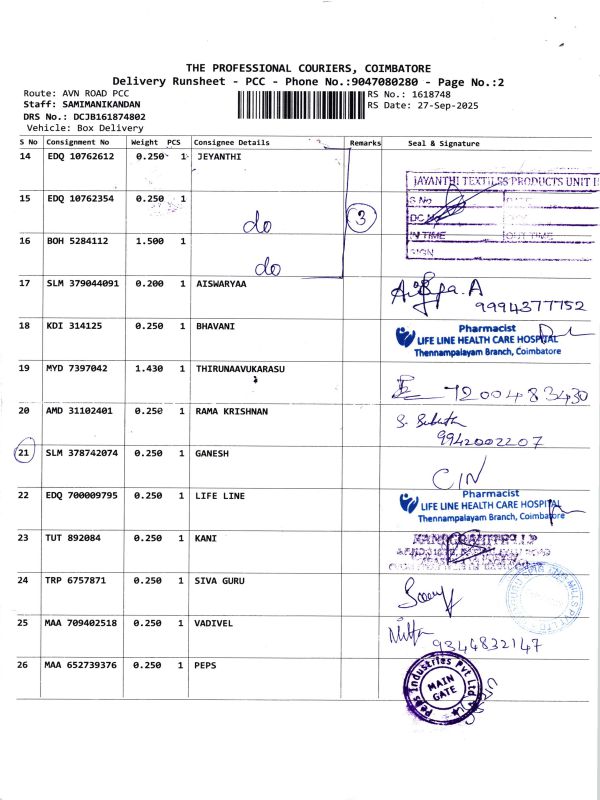 THE PROFESSIONAL COURIERS, COIMBATORE
Delivery Runsheet - PCC - Phone No.:9047080280 - Page No.:2
Route: AVN ROAD PCC
RS No.: 1618748
Staff: SAMIMANIKANDAN
RS Date: 27-Sep-2025
DRS No.: DCJB161874802
Vehicle: Box Delivery
S No Consignment No Weight PCS Consignee Details Remarks Seal & Signature
14 EDQ 10762612 0.250 1 JEYANTHI
JAYANTHI TEXTILES PRODUCTS UNIT II
S.No
DC No
IN TIME OUT TIME
SIGN
15 EDQ 10762354 0.250 1
do
3
16 BOH 5284112 1.500 1
do
17 SLM 379044091 0.200 1 AISWARYAA
9994377752
18 KDI 314125 0.250 1 BHAVANI
Pharmacist
LIFE LINE HEALTH CARE HOSPITAL
Thennampalayam Branch, Coimbatore
19 MYD 7397042 1.430 1 THIRUNAAVUKARASU
7200483430
20 AMD 31102401 0.250 1 RAMA KRISHNAN
9942002207
21 SLM 378742074 0.250 1 GANESH
CIN
22 EDQ 700009795 0.250 1 LIFE LINE
Pharmacist
LIFE LINE HEALTH CARE HOSPITAL
Thennampalayam Branch, Coimbatore
23 TUT 892084 0.250 1 KANI
24 TRP 6757871 0.250 1 SIVA GURU
25 MAA 709402518 0.250 1 VADIVEL
9344832147
26 MAA 652739376 0.250 1 PEPS
Peps Industries Pvt Ltd
MAIN
GATE